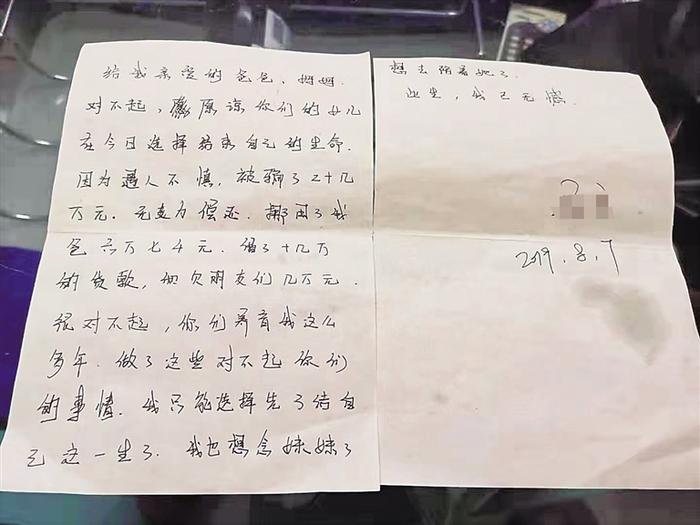 给我亲爱的爸爸、妈妈
对不起，原谅你们的女儿
在今日选择结束自己的生命.
因为遇人不慎，被骗了二十几
万元. 无支力偿还. 挪用了我
爸六万七千元. 借了十几万
的贷款, 加欠朋友们几万元.
很对不起，你们养育我这么
多年. 做了这些对不起你们
的事情. 我只能选择先了结自
己这一生了. 我也想念妹妹了
想去陪着她了.
此生，我已无憾.
2019.8.7